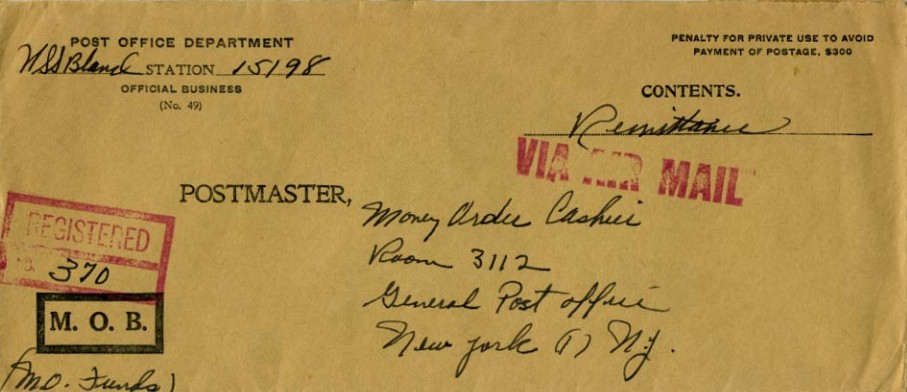 POST OFFICE DEPARTMENT
USS Bland STATION 15198
OFFICIAL BUSINESS
(No. 49)
PENALTY FOR PRIVATE USE TO AVOID
PAYMENT OF POSTAGE, $300
CONTENTS.
Remittance
VIA AIR MAIL
POSTMASTER,
Money Order Cashier
Room 3112
General Post office
New York (1) N.Y.
REGISTERED
NO. 370
M. O. B.
(M.O. Funds)